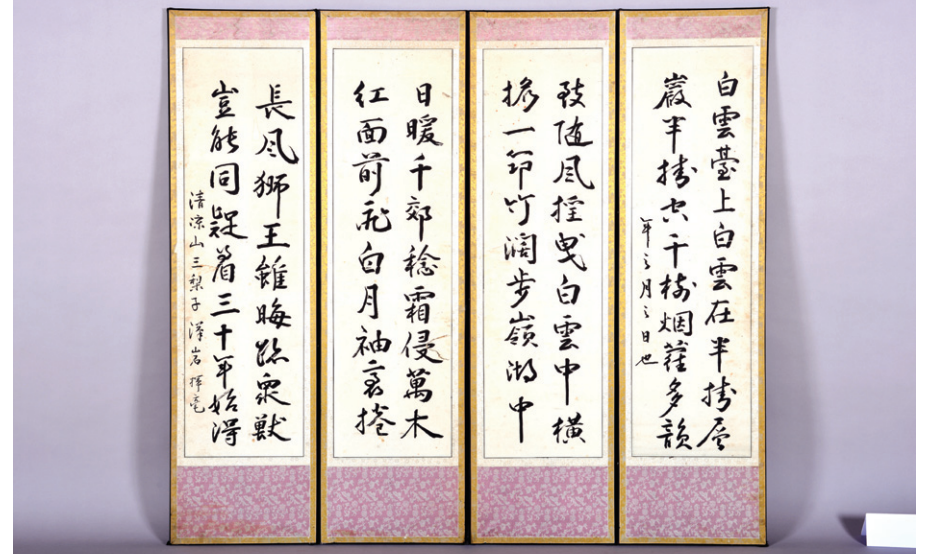 白雲臺上白雲在半掛层
巖半掛空千樹烟蘿多韻
年之月之日也
致随風捏曳白雲中橫
擔一笻竹濶步嶺湖中
日暖千郊稔霜侵萬木
紅面前飛白月袖裏捲
長風獅王雖晦跡衆獸
豈能同疑着三十年始得
清凉山三梨子 澤岩 揮毫